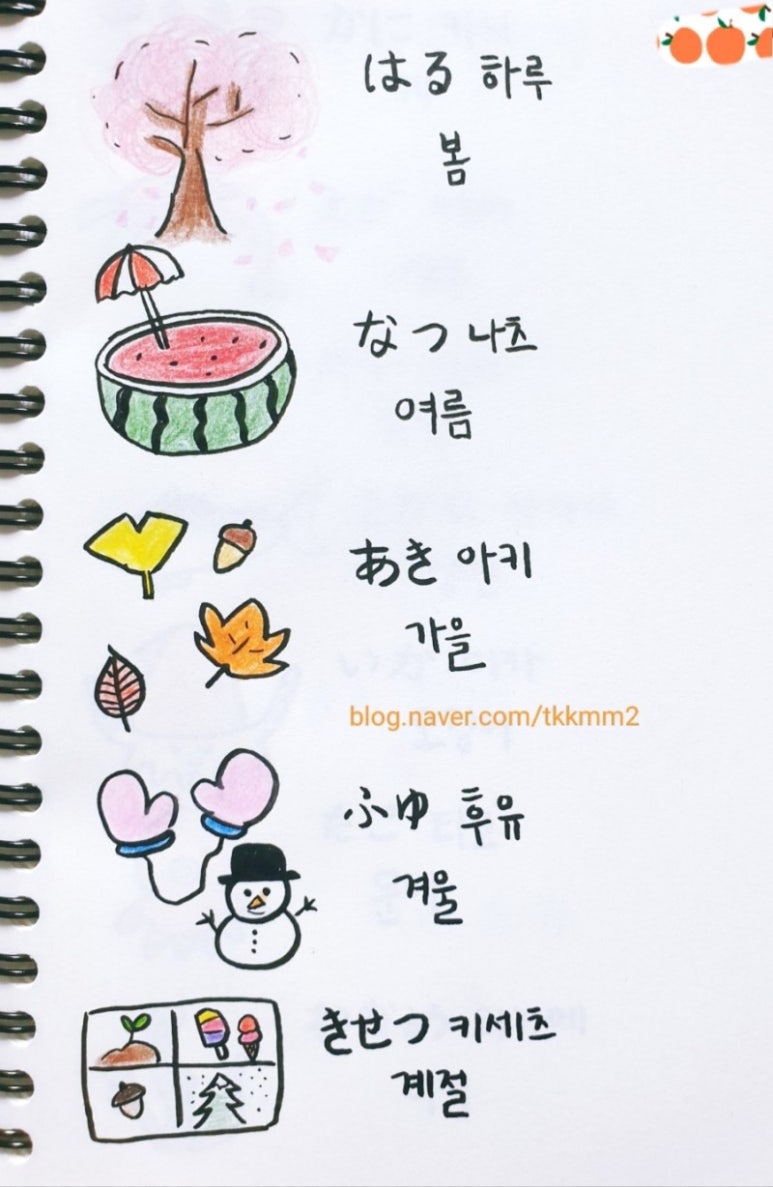 はる 하루
봄
なつ 나츠
여름
あき 아키
가을
blog.naver.com/tkkmm2
ふゆ 후유
겨울
きせつ 키세츠
계절